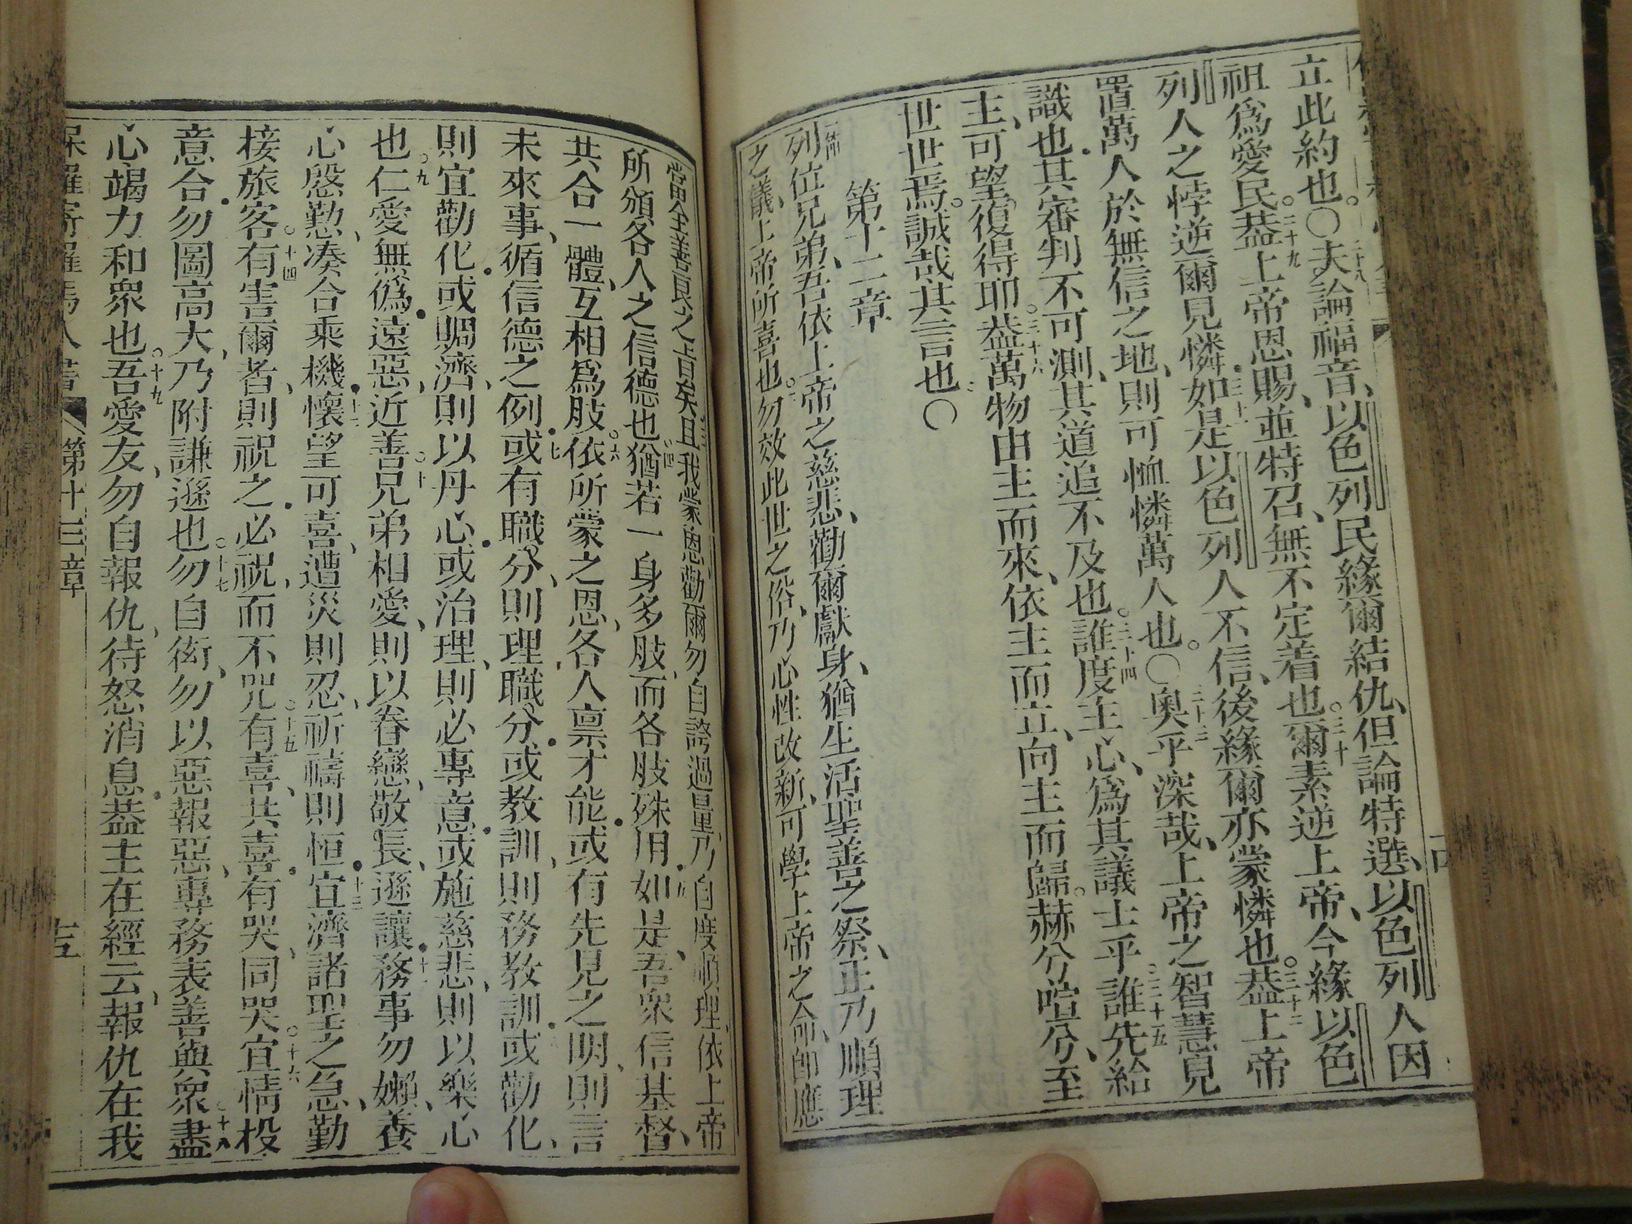 立此約也。○夫論福音、以色列民緣爾結仇、但論特選、以色列人因
祖爲愛民。蓋上帝恩賜、並特召、無不定着也。爾素逆上帝、今緣以色
列人之悖逆、爾見憐。如是以色列人不信、後緣爾亦蒙憐也。蓋上帝
置萬人於無信之地、則可恤憐萬人也。○奧乎深哉、上帝之智慧見
識也。其審判不可測、其道追不及也。誰度主心、爲其議士乎、誰先給
主、可望復得耶。蓋萬物由主而來、依主而立、向主而歸。赫兮喧兮、至
世世焉。誠哉其言也○
第十二章
列位兄弟、吾依上帝之慈悲、勸爾獻身、猶生活聖善之祭、正乃順理
之儀、上帝所喜也。勿效此世之俗、乃心性改新、可學上帝之命、卽應
當全善良之旨矣。且我蒙恩勸爾勿自誇過量、乃自度順理、依上帝
所頒各人之信德也。猶若一身多肢、而各肢殊用。如是、吾衆信基督、
共合一體、互相爲肢。依所蒙之恩、各人禀才能。或有先見之明、則言
未來事、循信德之例。或有職分、則理職分。或教訓、則務教訓。或勸化、
則宜勸化。或賙濟、則以丹心。或治理、則必專意。或施慈悲、則以樂心
也。仁愛無僞。遠惡、近善。兄弟相愛、則以眷戀、敬長、遜讓。務事勿嬾、養
心慇懃、湊合乘機。懷望可喜、遭災則忍、祈禱則恒。宜濟諸聖之急、勤
接旅客。有害爾者、則祝之。必祝、而不咒。有喜、共喜。有哭、同哭。宜情投
意合。勿圖高大、乃附謙遜也。勿自衒、勿以惡報惡、專務表善與衆。盡
心竭力和衆也。吾愛友、勿自報仇、待怒消息。蓋主在經云、報仇在我
保羅寄羅馬人書 第十三章 十五